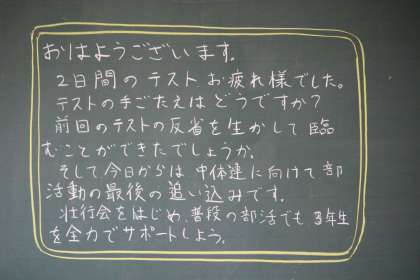 おはようございます。
2日間のテストお疲れ様でした。
テストの手ごたえはどうですか?
前回のテストの反省を生かして臨
むことができたでしょうか。
そして今日からは中体連に向けて部
活動の最後の追い込みです。
壮行会をはじめ、普段の部活でも3年生
を全力でサポートしよう。